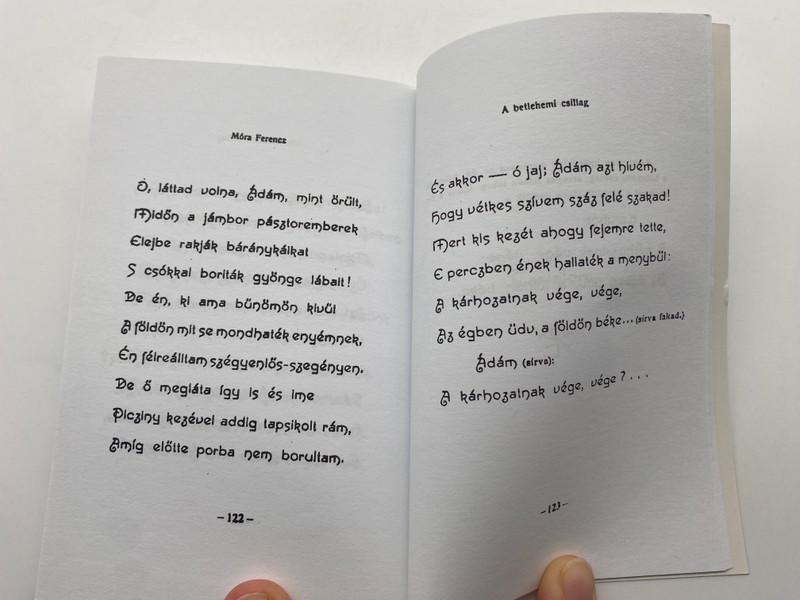 Móra Ferencz
Ó, láttad volna, Ádám, mint örült,
Midőn a jámbor pásztoremberek
Elejbe rakják báránykáikat
S csókkal boríták gyönge lábait!
De én, ki ama bűnömön kivül
A földön mit se mondhaték enyémnek,
Én félreálltam szégyenlős-szegényen.
De ő megláta így is és ime
Picziny kezével addig tapsikolt rám,
Amíg előtte porba nem borultam.
– 122 –
A betlehemi csillag
És akkor — ó jaj; Ádám azt hivém,
Hogy vétkes szívem száz felé szakad!
Mert kis kezét ahogy fejemre tette,
E perczben ének hallaték a menybül:
A kárhozatnak vége, vége,
Az égben üdv, a földön béke... (sirva fakad.)
Ádám (sirva):
A kárhozatnak vége, vége ? . . .
– 123 –